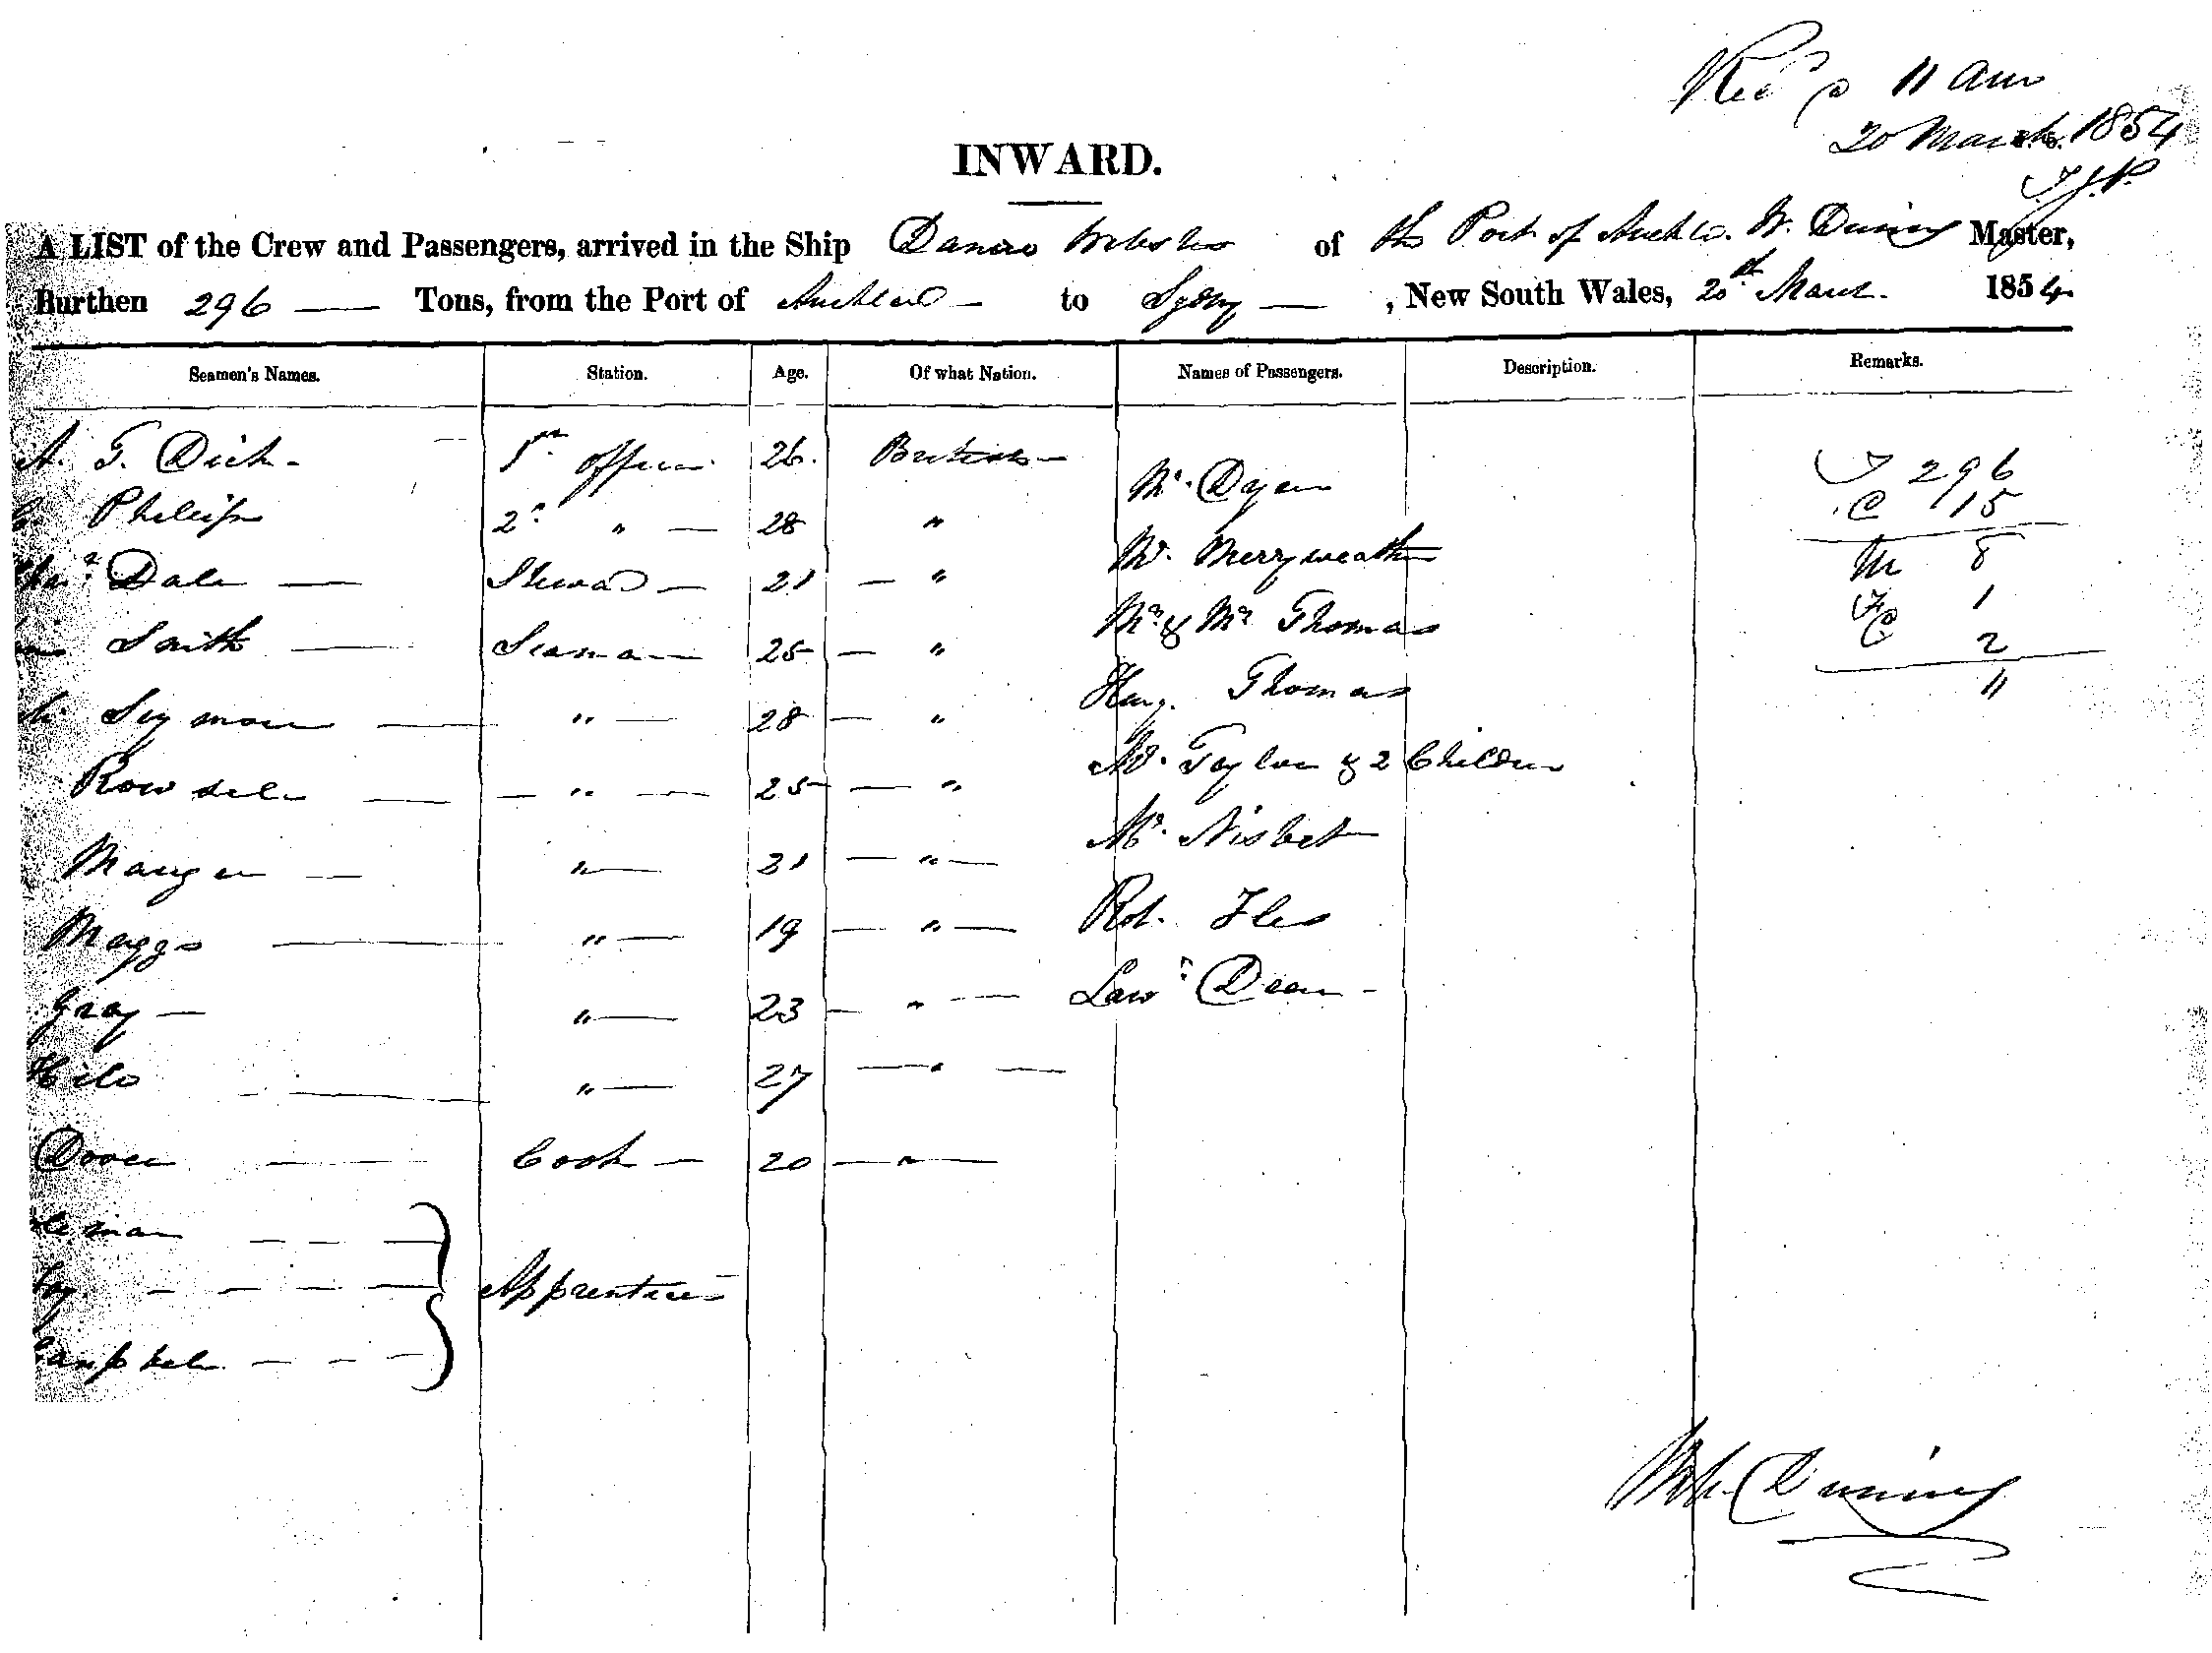 Recd @ 11 am
20 March 1854
T.J.P.
INWARD.
A LIST of the Crew and Passengers, arrived in the Ship Daniel Webster of the Port of Auckld. W. Dining Master,
Burthen 296 — Tons, from the Port of Auckland — to Sydney — , New South Wales, 20th March. 1854
Seamen's Names. Station. Age. Of what Nation. Names of Passengers. Description. Remarks.
A. G. Dick - 1st officer 26. British — T 296
Philips 2d " — 28 " Mr. Dyer C 15
Dale — Steward — 21 — " Mr. Merryweather M 8
Smith — Seaman — 25 — " Mr & Mrs Thomas F 1
Seymour — " — 28 — " Hy. Thomas C 2
11
Rowsell — " — 25 — " Mr. Taylor & 2 Children
Mauger — " — 21 — " — Mr. Nisbet
Maggs — " — 19 — " — Rob. Iles
Gray — " — 23 — " — Law. Dean -
" — 27 — " —
Dover — Cook — 20 — " —
Apprentices
Campbell — — —
Wm. Dining